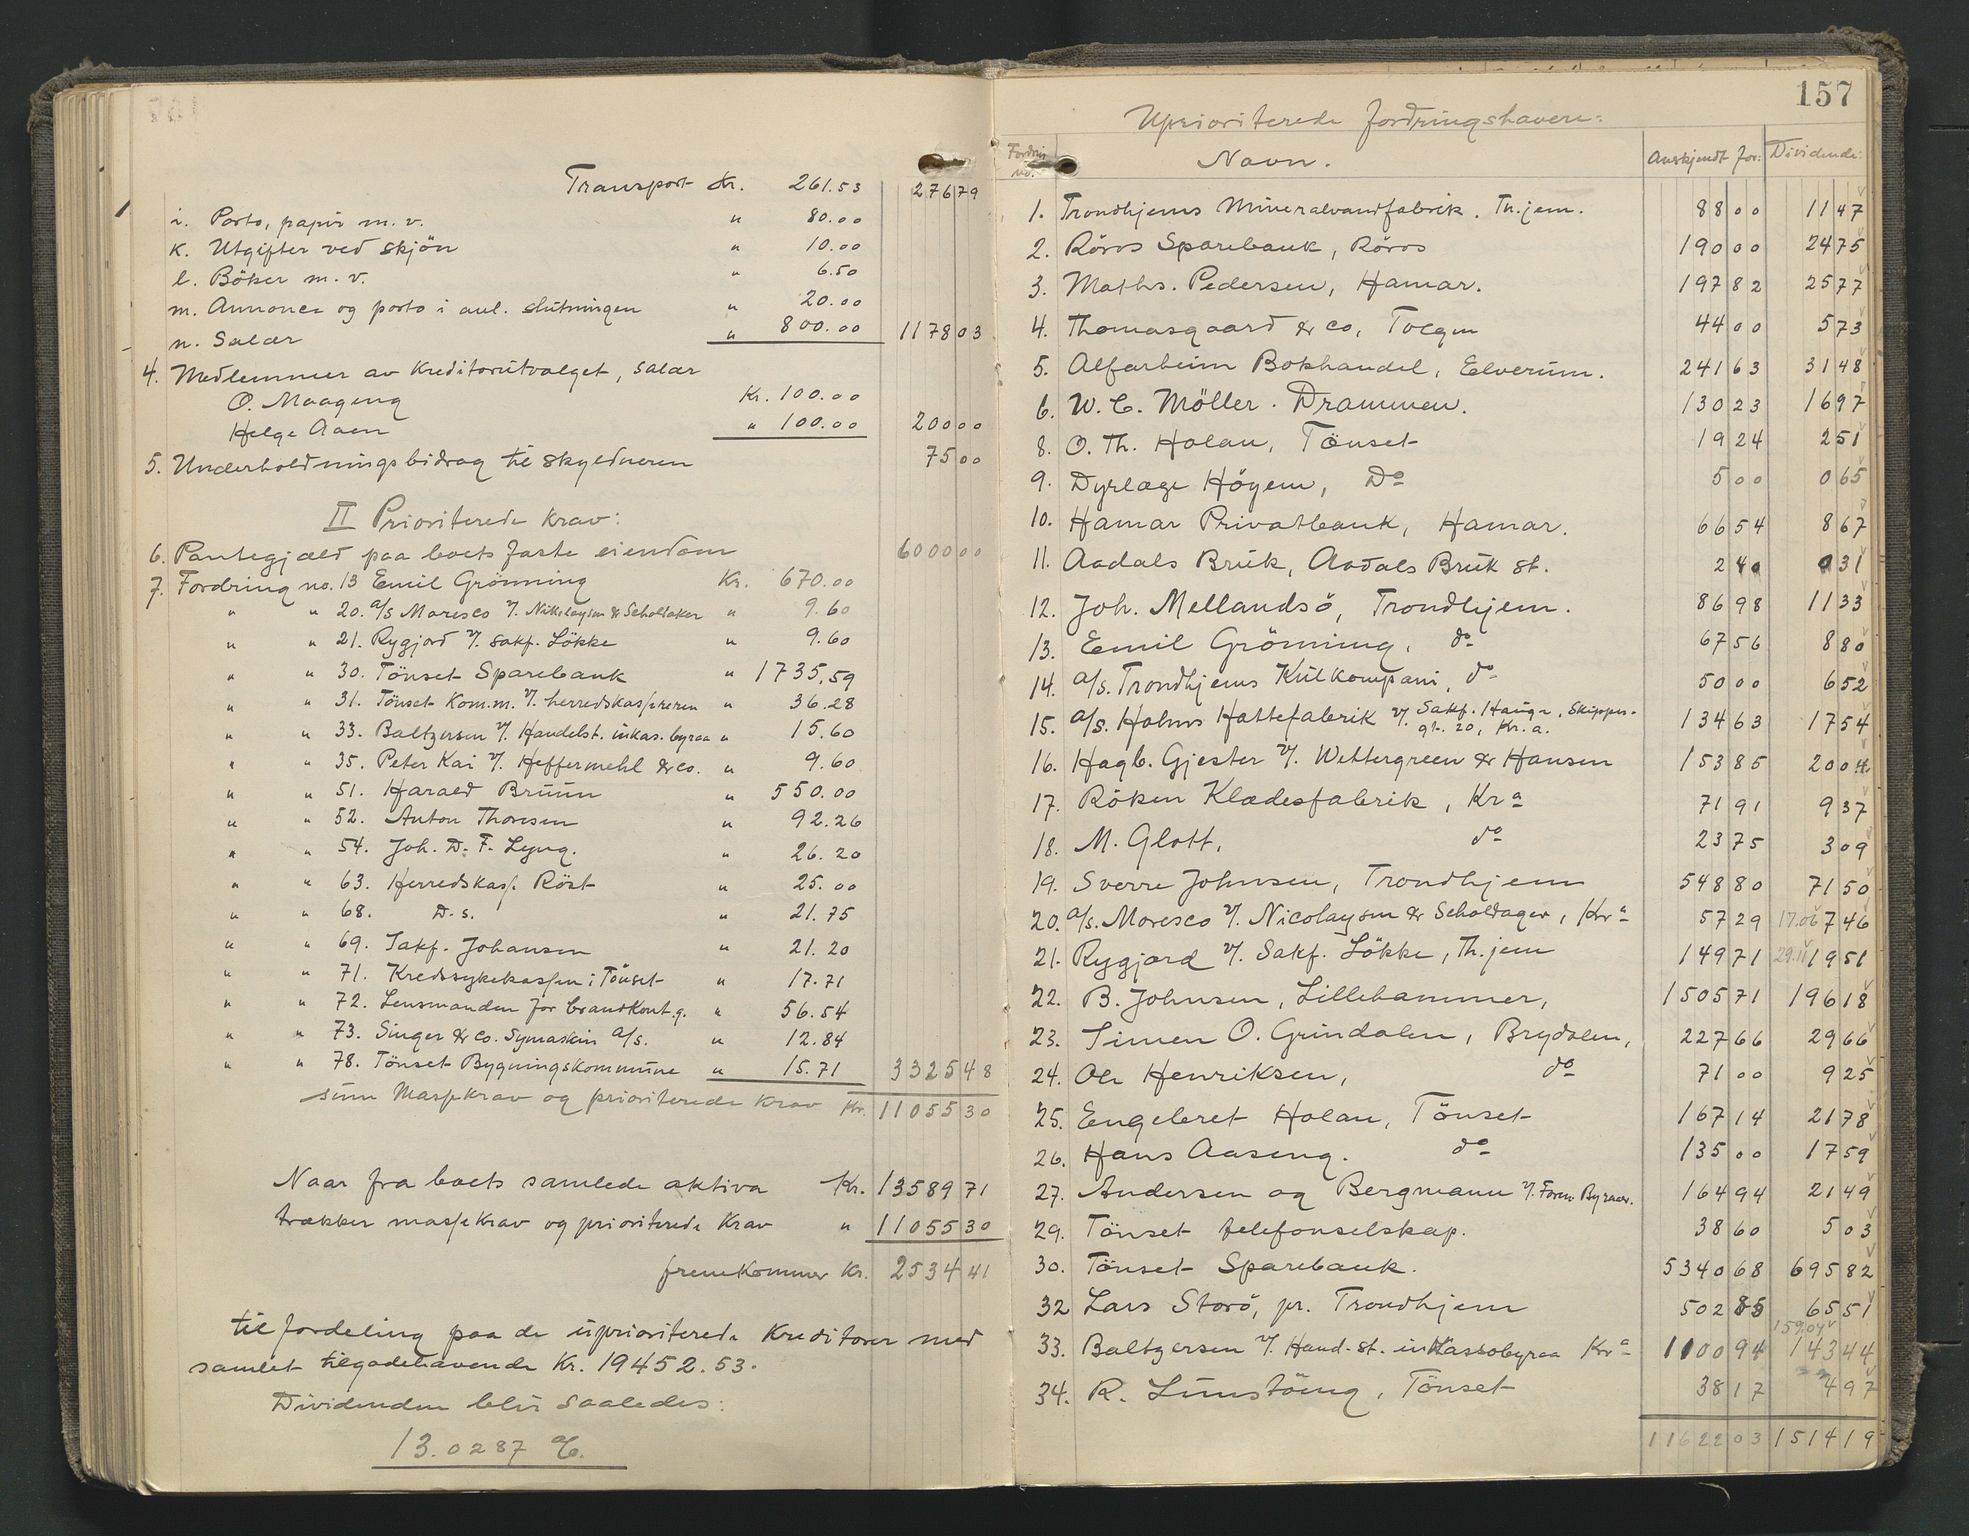 Transport Kr. 261.53 276 79
i. Porto, papir m. v. " 80.00
k. Utgifter ved skjön " 10.00
l. Böker m. v. " 6.50
m. Annonce og porto i anl. slutningen " 20.00
n. Salær " 800.00 1178 03
4. Medlemmer av Kreditorutvalget, salær
O. Maageng Kr. 100.00
Helge Aaen " 100.00 200 00
5. Underholdningsbidrag til skyldneren 75 00
II Prioriterede krav:
6. Pantegjæld paa boets faste eiendom 6000 00
7. Fordring no. 13 Emil Grönning Kr. 670.00
" " 20. a/s Moresco v/. Nikolaysen & Scholdaker " 9.60
" " 21. Rygjord v/. sakf. Lökke " 9.60
" " 30. Tönset Sparebank " 1735.59
" " 31. Tönset Kom.m. v/. herredskassereren " 36.28
" " 33. Baltzersen v/. Handelst. inkas. byraa " 15.60
" " 35. Peter Kai v/. Heffermehl & co. " 9.60
" " 51. Harald Bruun " 550.00
" " 52. Anton Thoresen " 92.26
" " 54. Joh. D. F. Lyng. " 26.20
" " 63. Herredskass. Röst " 25.00
" " 68. D. s. " 21.75
" " 69. Sakf. Johansen " 21.20
" " 71. Kredssykekassen i Tönset " 17.71
" " 72. Lensmanden for brandkont.g. " 56.54
" " 73. Singer & co. Symaskin a/s. " 12.84
" " 78. Tönset Bygningskommune " 15.71 3325 48
sum Massekrav og prioriterede krav Kr. 11055 30
Naar fra boets samlede aktiva Kr. 13589 71
trækker massekrav og prioriterede Krav " 11055 30
fremkommer Kr. 2534 41
til fordeling paa de uprioriterede Kreditorer med
samlet tilgodehavende Kr. 19452.53.
Dividenden blir saaledes:
13.0287 %.
157
Uprioriterede fordringshavere:
Fordrin no. Navn. Anerkjendt for: Dividende:
1. Trondhjems Mineralvandfabrik. Th.jem. 88 00 11 47
2. Röros Sparebank, Röros 190 00 24 75
3. Maths. Pedersen, Hamar. 197 82 25 77
4. Thomasgaard & co, Tolgen 44 00 5 73
5. Alfarheim Bokhandel, Elverum. 241 63 31 48
6. W. C. Möller. Drammen. 130 23 16 97
8. O. Th. Holan, Tönset 19 24 2 51
9. Dyrlæge Höyem, Do 5 00 0 65
10. Hamar Privatbank, Hamar. 66 54 8 67
11. Aadals Bruk, Aadals Bruk st. 2 40 0 31
12. Joh. Mellandsö, Trondhjem. 86 98 11 33
13. Emil Grönning, do 67 56 8 80
14. a/s. Trondhjems Kulkompani, do 50 00 6 52
15. a/s. Holms Hattefabrik v/. Sakf. Hauge, Skipper-
gt. 20, Kr.a. 134 63 17 54
16. Hagb. Gjester v/. Wettergreen & Hansen 153 85 20 04
17. Röken Klædesfabrik, Kra 71 91 9 37
18. M. Glott, do 23 75 3 09
19. Sverre Johnsen, Trondhjem 548 80 71 50
20. a/s. Moresco v/. Nicolaysen & Scholdager, Kra 57 29 17.06 7 46
21. Rygjord v/. Sakf. Lökke, Th.jem 149 71 29.11 19 51
22. B. Johnsen, Lillehammer, 1505 71 196 18
23. Simen O. Grindalen, Brydalen, 227 66 29 66
24. Ole Henriksen, do 71 00 9 25
25. Engebret Holan, Tönset 167 14 21 78
26. Hans Aaseng. do 135 00 17 59
27. Andersen og Bergmann v/. Foren. Byraaer. 164 94 21 49
29. Tönset telefonselskap. 38 60 5 03
30. Tönset Sparebank. 5340 68 695 82
32 Lars Storö, pr. Trondhjem 502 85 65 51
159.04
33. Baltzersen v/. Hand. st. inkassobyraa Kra 1100 94 143 44
34. R. Lunstöeng, Tönset 38 17 4 97
11622 03 1514 19